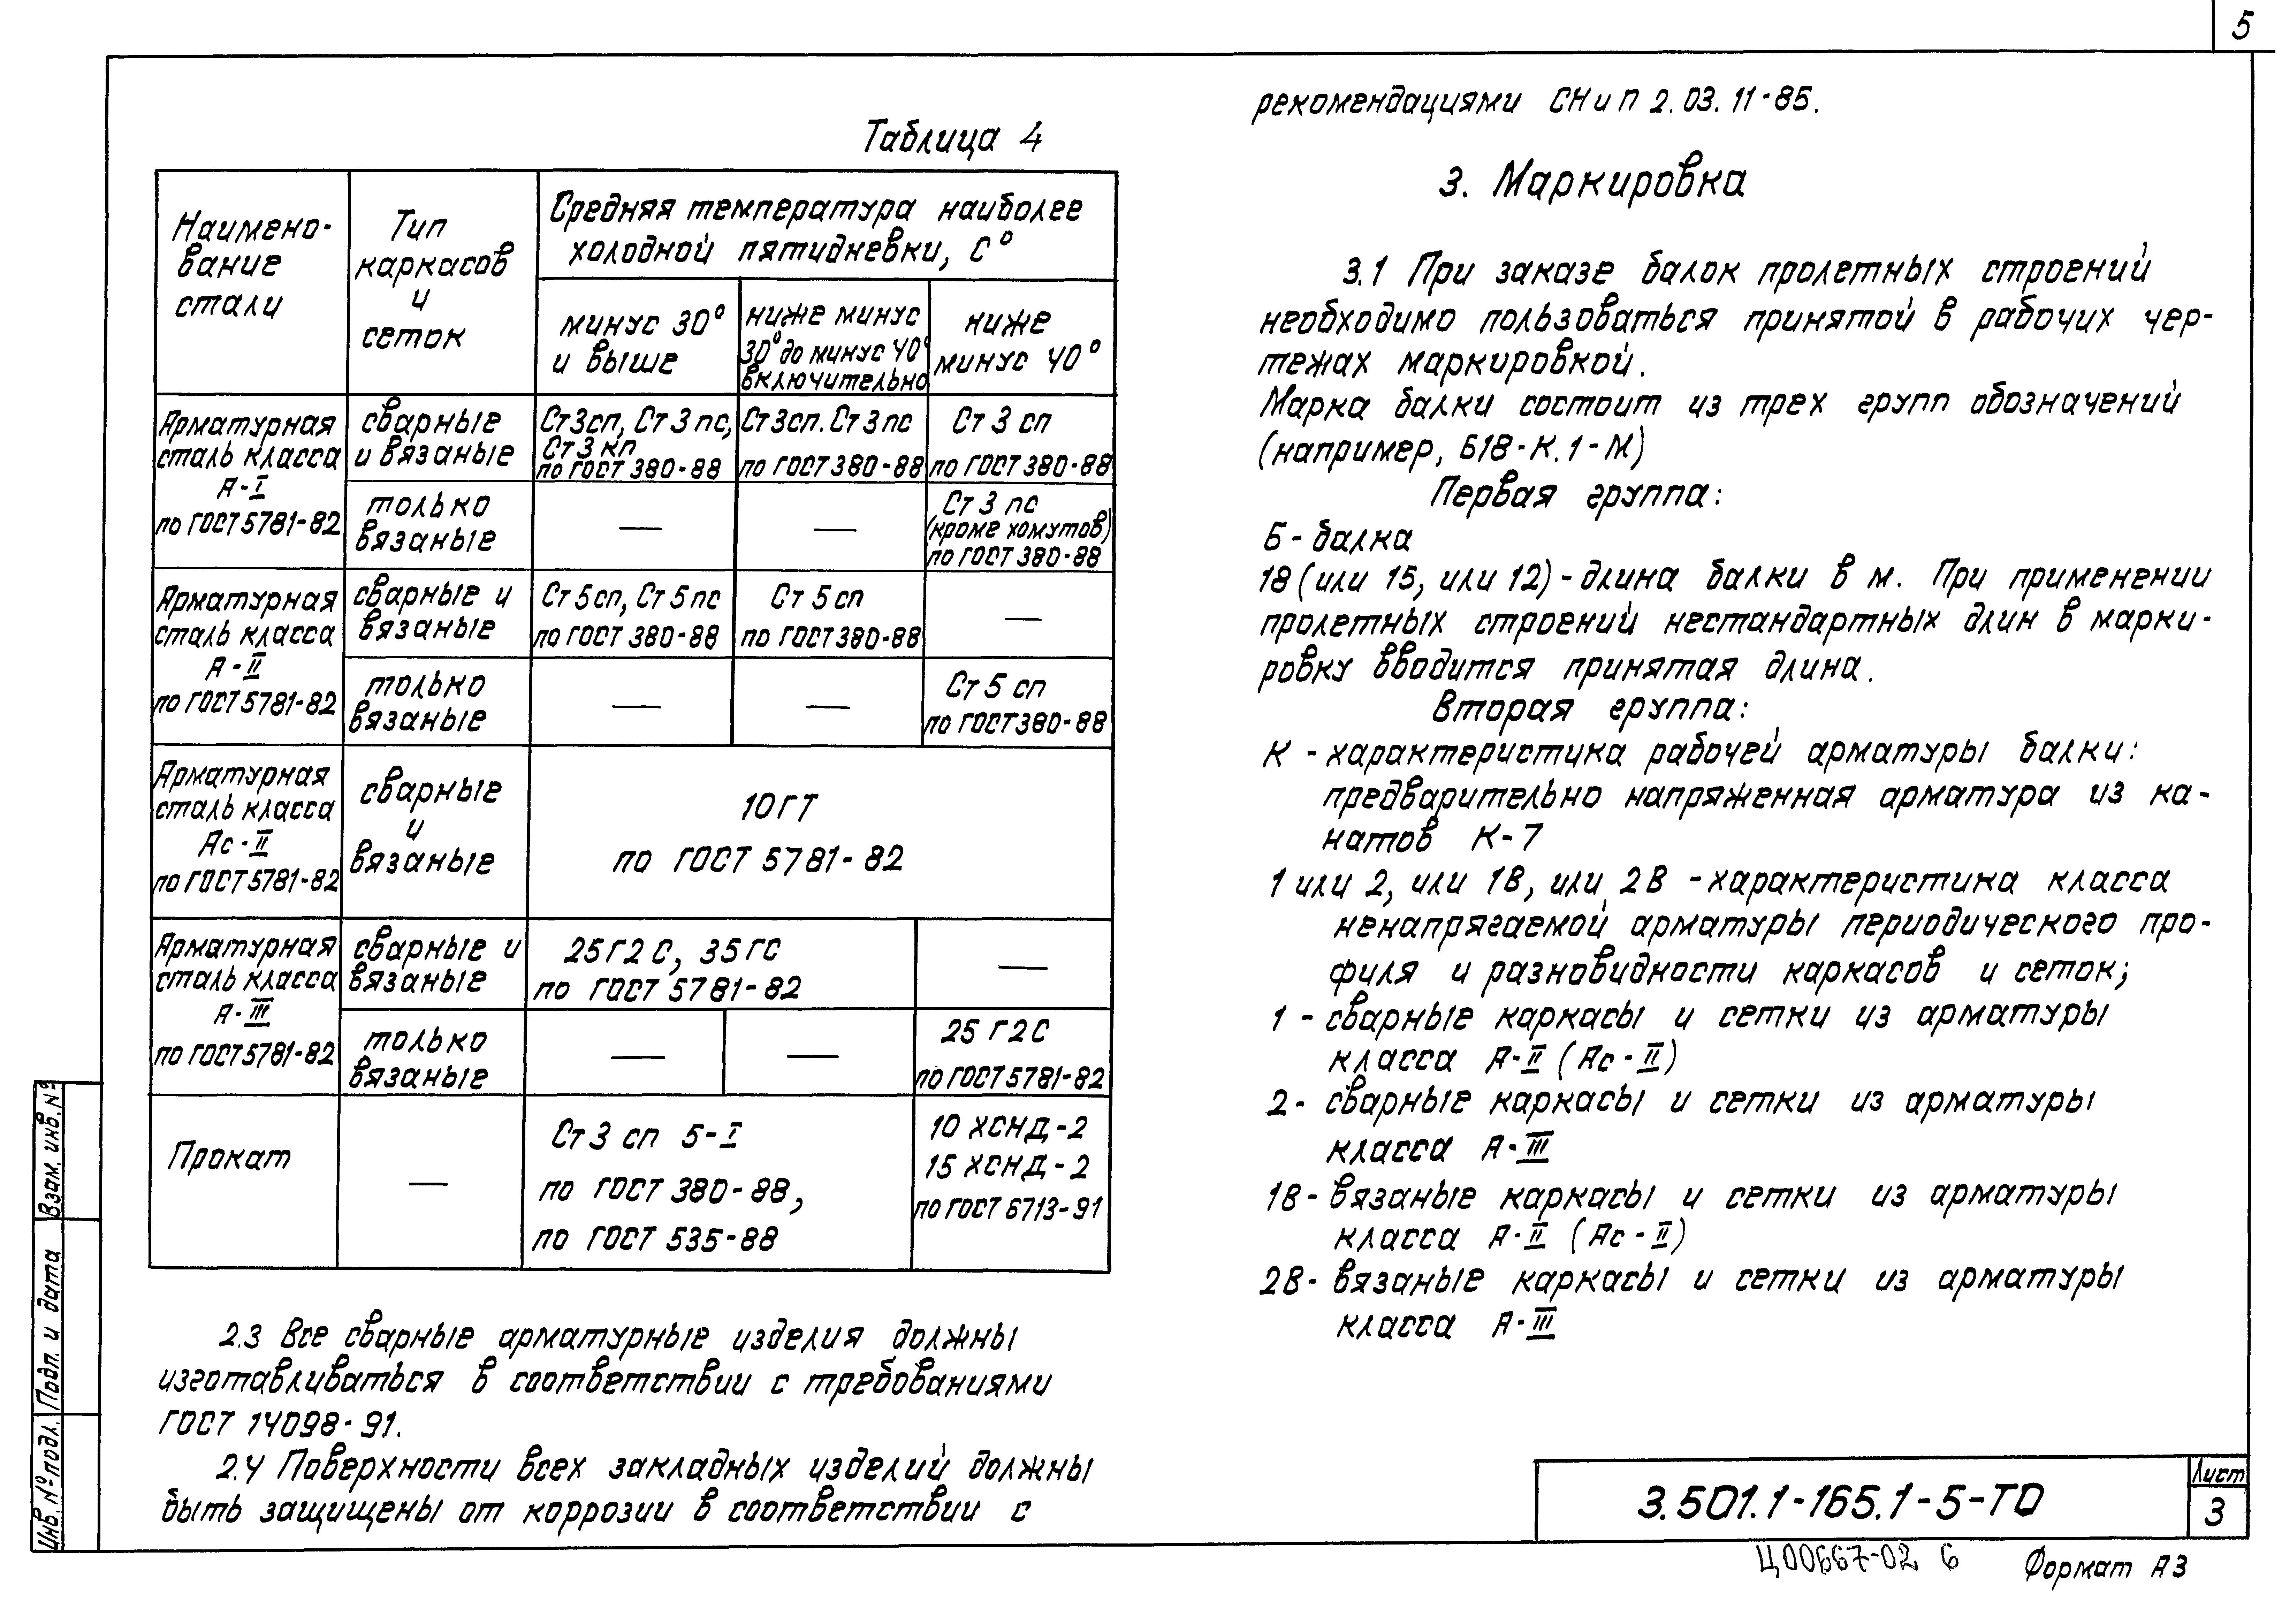 5
Таблица 4
Наимено-
вание
стали
Тип
каркасов
и
сеток
Средняя температура наиболее
холодной пятидневки, С°
минус 30°
и выше
ниже минус
30° до минус 40°
включительно
ниже
минус 40°
Арматурная
сталь класса
А-I
по ГОСТ 5781-82
сварные
и вязаные
Ст3сп, Ст3пс,
Ст3кп
по ГОСТ 380-88
Ст3сп. Ст3пс
по ГОСТ 380-88
Ст 3 сп
по ГОСТ 380-88
только
вязаные
—
—
Ст 3 пс
(кроме хомутов)
по ГОСТ 380-88
Арматурная
сталь класса
А-II
по ГОСТ 5781-82
сварные и
вязаные
Ст 5сп, Ст 5пс
по ГОСТ 380-88
Ст 5 сп
по ГОСТ 380-88
—
только
вязаные
—
—
Ст 5 сп
по ГОСТ 380-88
Арматурная
сталь класса
Ас-II
по ГОСТ 5781-82
сварные
и
вязаные
10ГТ
по ГОСТ 5781-82
Арматурная
сталь класса
А-III
по ГОСТ 5781-82
сварные и
вязаные
25Г2С, 35ГС
по ГОСТ 5781-82
—
только
вязаные
—
—
25Г2С
по ГОСТ 5781-82
Прокат
—
Ст 3 сп 5-I
по ГОСТ 380-88,
по ГОСТ 535-88
10 ХСНД-2
15 ХСНД-2
по ГОСТ 6713-91
2.3 Все сварные арматурные изделия должны
изготавливаться в соответствии с требованиями
ГОСТ 14098-91.
2.4 Поверхности всех закладных изделий должны
быть защищены от коррозии в соответствии с
рекомендациями СНиП 2.03.11-85.
3. Маркировка
3.1 При заказе балок пролетных строений
необходимо пользоваться принятой в рабочих чер-
тежах маркировкой.
Марка балки состоит из трех групп обозначений
(например, Б18-К.1-М)
Первая группа:
Б - балка
18 (или 15, или 12) - длина балки в м. При применении
пролетных строений нестандартных длин в марки-
ровку вводится принятая длина.
Вторая группа:
К - характеристика рабочей арматуры балки:
предварительно напряженная арматура из ка-
натов К-7
1 или 2, или 1В, или 2В - характеристика класса
ненапрягаемой арматуры периодического про-
филя и разновидности каркасов и сеток;
1 - сварные каркасы и сетки из арматуры
класса А-II (Ас-II)
2 - сварные каркасы и сетки из арматуры
класса А-III
1В - вязаные каркасы и сетки из арматуры
класса А-II (Ас-II)
2В - вязаные каркасы и сетки из арматуры
класса А-III
Взам. инв. №
Подп. и дата
Инв. № подл.
3.501.1-165.1-5-ТО
Лист
3
Ц00667-02 6
Формат А3